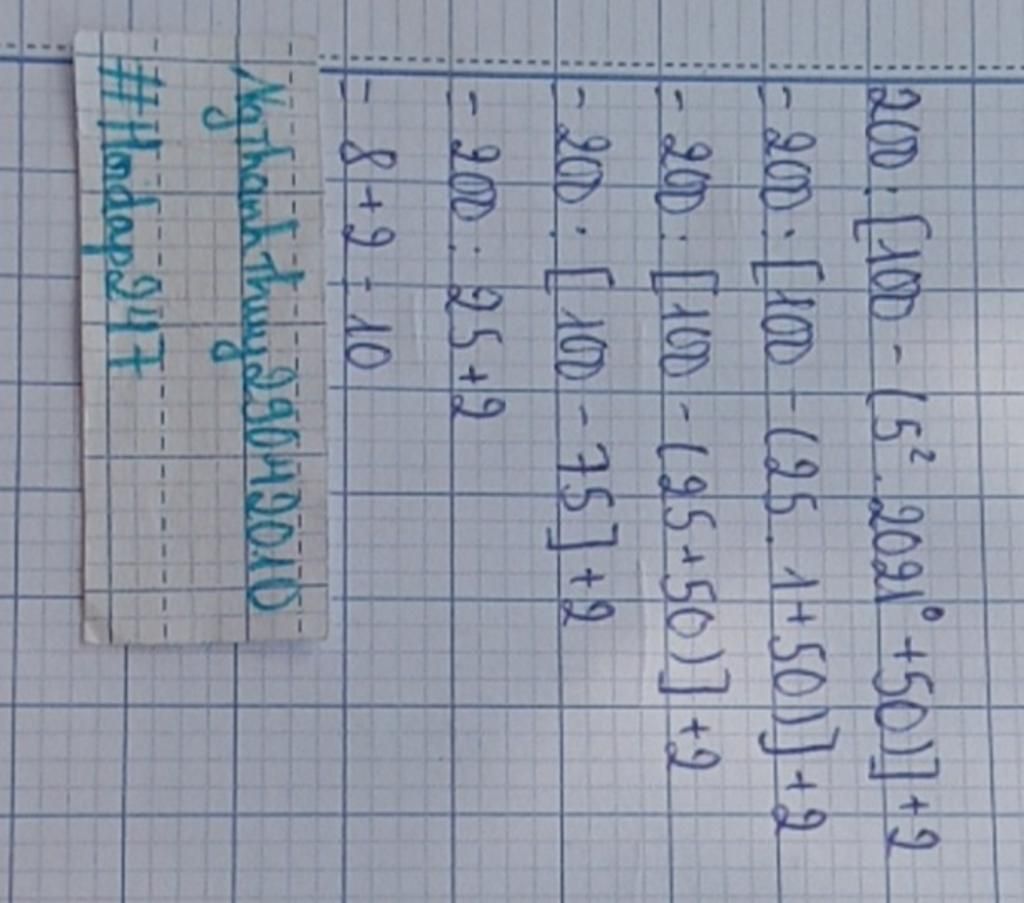 200 : [100 - (5² . 2021⁰ + 50)] + 2
= 200 : [100 - (25 . 1 + 50)] + 2
= 200 : [100 - (25 + 50)] + 2
= 200 : [100 - 75] + 2
= 200 : 25 + 2
= 8 + 2 = 10
Ngthanhthuy29042010
#Hoidap247